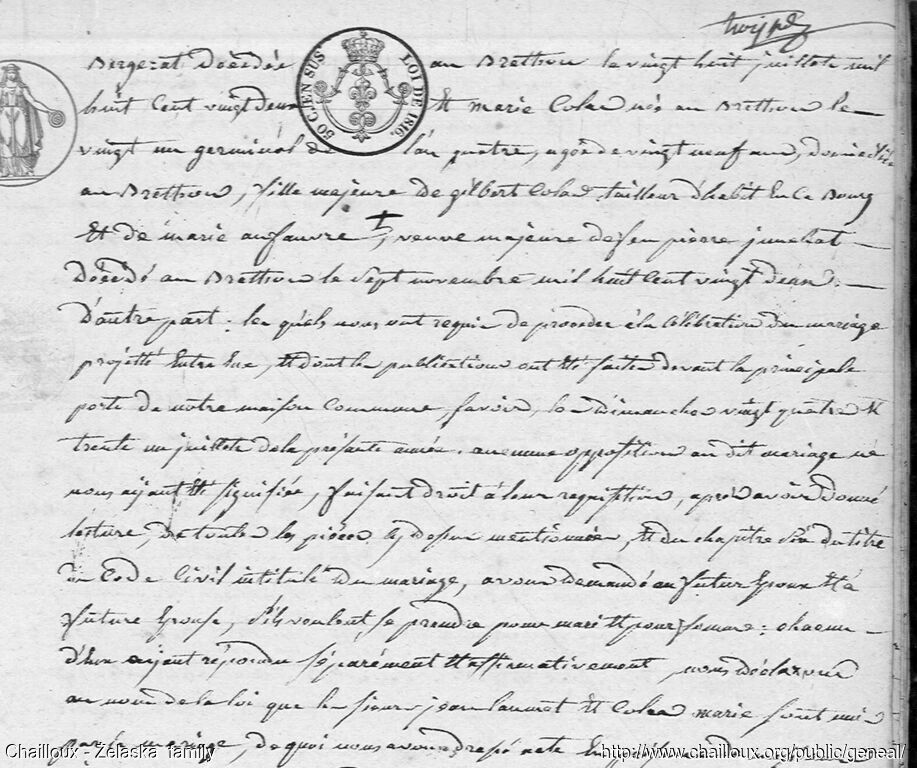 Bergerat Décédée au Brethon le vingt huit juillete mil
50 C. EN SUS LOI DE 1816.
huit Cent vingt deux Et marie Colas née au Brethon le
vingt un germinal de l'an quatre, agée de vingt neuf ans, domiciliée
au Brethon, fille majeure De gilbert Colas tailleur d'habit En Ce Bourg
Et de marie aufauvre †, veuve majeure de feu pierre junchat
Décédé au Brethon le Sept novembre mil huit Cent vingt deux.
D'autre part. les quels nous ont requis de proceder à la Célébration du mariage
projetté Entre Eux, Et dont les publications ont Eté faites devant la principale
porte de notre maison Commune, Savoir, les Dimanches vingt quatre Et
trente un juillete de la présente année. aucune opposition au dit mariage ne
nous ayant Eté Signifiée, faisant droit à leur requisition, après avoir donné
lécture, de toutes les pièces Cy dessus mentionnées, Et du chapitre Six du titre
du Code Civil intitulé Du mariage, avons Demandé au futur Epoux Et à
future Epouse, S'ils veulent Se prendre pour mari Et pour femme: chacun
d'Eux ayant répondu Séparément Et affirmativement, nous Déclarons
au nom de la loi que le Sieur jean laumet Et Colas marie Sont unis
par le mariage, de quoi nous avons dressé acte
Chailloux - Zelaska family
http://www.chailloux.org/public/geneal/